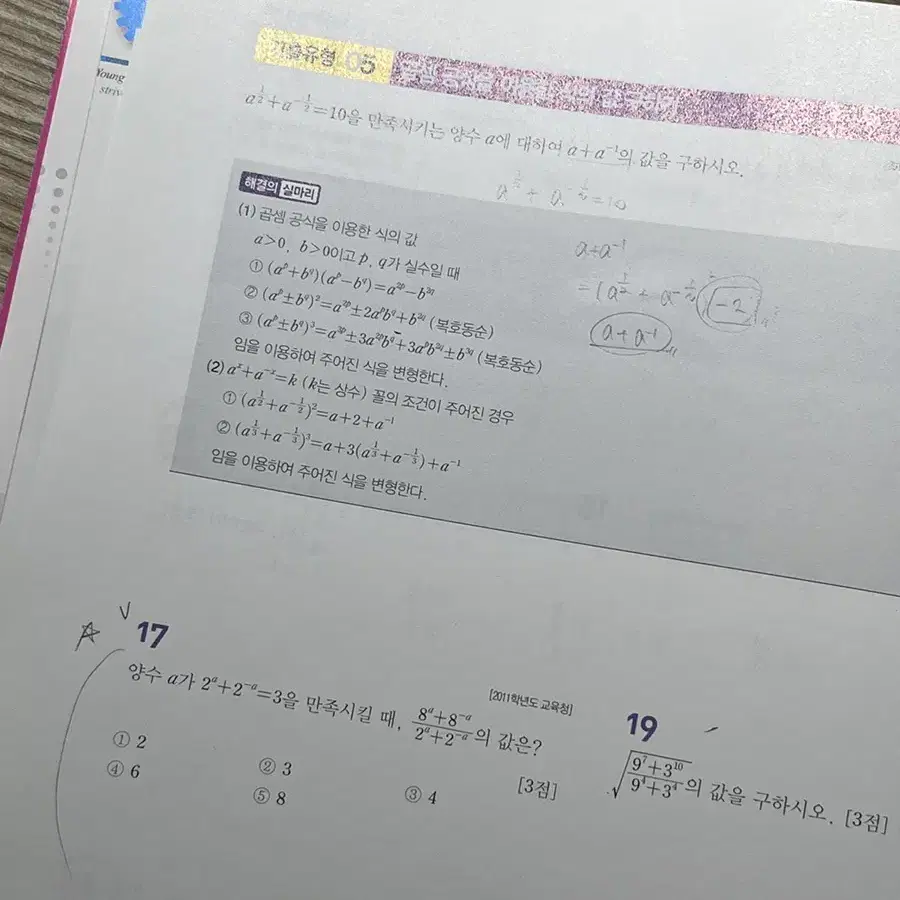 Young
striv
기출유형 05
a^{\frac{1}{2}}+a^{-\frac{1}{2}}=10을 만족시키는 양수 a에 대하여 a+a^{-1}의 값을 구하시오.
a^{\frac{1}{2}} + a^{-\frac{1}{2}}=10
해결의 실마리
(1) 곱셈 공식을 이용한 식의 값
a>0, b>0이고 p, q가 실수일 때
① (a^p+b^q)(a^p-b^q)=a^{2p}-b^{2q}
② (a^p±b^q)^2=a^{2p}±2a^pb^q+b^{2q} (복호동순)
③ (a^p±b^q)^3=a^{3p}±3a^{2p}b^q+3a^pb^{2q}±b^{3q} (복호동순)
임을 이용하여 주어진 식을 변형한다.
(2) a^x+a^{-x}=k (k는 상수) 꼴의 조건이 주어진 경우
① (a^{\frac{1}{2}}+a^{-\frac{1}{2}})^2=a+2+a^{-1}
② (a^{\frac{1}{3}}+a^{-\frac{1}{3}})^3=a+3(a^{\frac{1}{3}}+a^{-\frac{1}{3}})+a^{-1}
임을 이용하여 주어진 식을 변형한다.
a+a^{-1}
=(a^{\frac{1}{2}} + a^{-\frac{1}{2}} -2
a+a^{-1}
17
양수 a가 2^a+2^{-a}=3을 만족시킬 때, \frac{8^a+8^{-a}}{2^a+2^{-a}}의 값은?
[2011학년도 교육청]
[3점]
① 2
② 3
③ 4
④ 6
⑤ 8
19
\sqrt{\frac{9^7+3^{10}}{9^4+3^4}}의 값을 구하시오. [3점]